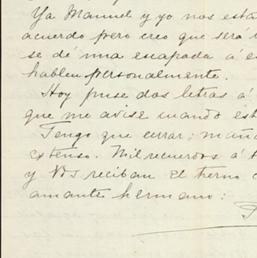 Ya Manuel y yo nos esta
acuerdo pero creo que será
se dé una escapada á
hablen personalmente.
Hoy puse dos letras á
que me avise cuando est
Tengo que cerrar: maña
extenso. Mil recuerdos á
y Vds reciban el tierno
amante hermano: